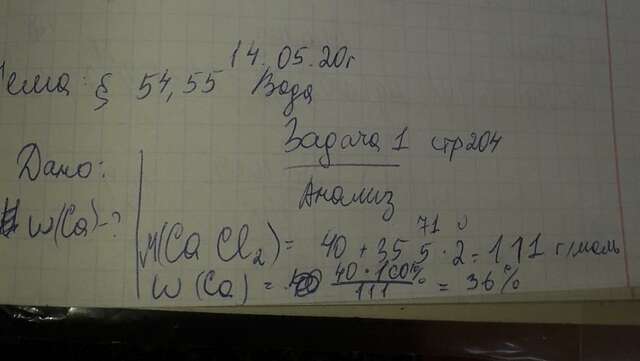 14.05.20г
Тема: § 54,55 Вода
Задача 1 стр 204
Дано:
Анализ
W(Ca)-?
71
M(CaCl2) = 40 + 35 5 · 2 = 111 г/моль
W(Ca) = 40 · 100% / 111 = 36%